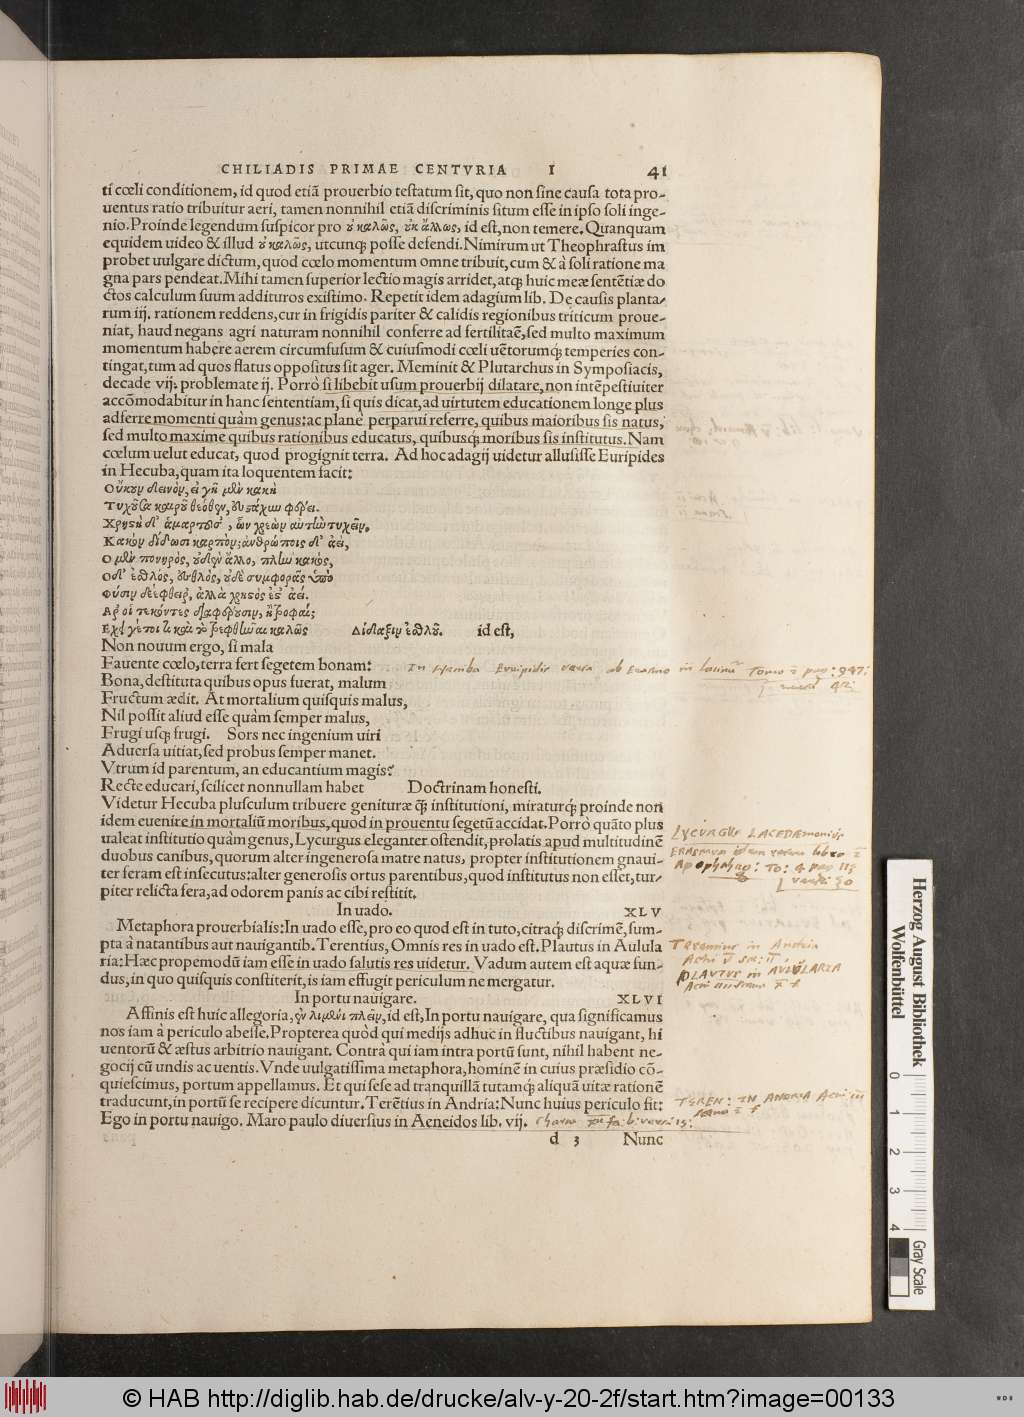 CHILIADIS PRIMAE CENTVRIA I 41
ti cœli conditionem, id quod etiā prouerbio testatum sit, quo non sine causa tota pro-
uentus ratio tribuitur aeri, tamen nonnihil etiā discriminis situm esse in ipso soli inge-
nio. Proinde legendum suspicor pro ὀ καλῶς, ὀκ ἄλλως, id est, non temere. Quanquam
equidem uideo & illud ὀ καλῶς, utcunq; posse defendi. Nimirum ut Theophrastus im
probet uulgare dictum, quod cœlo momentum omne tribuit, cum & à soli ratione ma
gna pars pendeat. Mihi tamen superior lectio magis arridet, atq; huic meæ sentētiæ do
ctos calculum suum addituros existimo. Repetit idem adagium lib. De causis planta-
rum iij. rationem reddens, cur in frigidis pariter & calidis regionibus triticum proue-
niat, haud negans agri naturam nonnihil conferre ad fertilitaē, sed multo maximum
momentum habere aerem circumfusum & cuiusmodi cœli uētorumq; temperies con-
tingat, tum ad quos flatus oppositus sit ager. Meminit & Plutarchus in Symposiacis,
decade vij. problemate ij. Porrò si libebit usum prouerbij dilatare, non intēpestiuiter
accōmodabitur in hanc sententiam, si quis dicat, ad uirtutem educationem longe plus
adferre momenti quàm genus: ac planè perparui referre, quibus maioribus sis natus,
sed multo maxime quibus rationibus educatus, quibusq; moribus sis institutus. Nam
cœlum uelut educat, quod progignit terra. Ad hoc adagij uidetur allusisse Euripides
in Hecuba, quam ita loquentem facit:
Οὔκουν δεινὸν, εἰ γῆ μὲν κακὴ
Τυχοῦσα καιροῦ θεόθεν, εὖ στάχυν φέρει.
Χρηστὴ δ' ἁμαρτοῦσ', ὧν χρεὼν αὐτὴν τυχεῖν,
Κακὸν δίδωσι καρπὸν; ἀνθρώποις δ' ἀεὶ,
Ο μὲν πονηρὸς, οὐδὲν ἄλλο, πλὴν κακὸς,
Οδ' ἐσθλὸς, ἐσθλὸς, οὐδὲ συμφορᾶς ὑπὸ
Φύσιν διέφθειρ, ἀλλὰ χρηστὸς ἔστ' ἀεί.
Αρ' οἱ τεκόντες διαφέρουσιν, ἢ τροφαί;
Εχει γέ τοι τι καὶ τὸ τρεφθῆναι καλῶς Δίδαξιν ἐσθλοῦ. id est,
Non nouum ergo, si mala
Fauente cœlo, terra fert segetem bonam: In Hecuba Euripidis versa ab Erasmo in latinū Tomo 1 pag: 947:
Bona, destituta quibus opus fuerat, malum versū 42:
Fructum ædit. At mortalium quisquis malus,
Nil possit aliud esse quàm semper malus,
Frugi usq; frugi. Sors nec ingenium uiri
Aduersa uitiat, sed probus semper manet.
Vtrum id parentum, an educantium magis?
Recte educari, scilicet nonnullam habet Doctrinam honesti.
Videtur Hecuba plusculum tribuere genituræ q̄; institutioni, miraturq; proinde non
idem euenire in mortaliū moribus, quod in prouentu segetū accidat. Porrò quāto plus
ualeat institutio quàm genus, Lycurgus eleganter ostendit, prolatis apud multitudinē
duobus canibus, quorum alter ingenerosa matre natus, propter institutionem gnaui-
ter feram est insecutus: alter generosis ortus parentibus, quod institutus non esset, tur-
piter relicta fera, ad odorem panis ac cibi restitit.
LYCURGUS LACEDÆmonius
ERASMUM idem
Apophtheg: To: 4 pag 115
versū: 50
In uado. XLV
Metaphora prouerbialis: In uado esse, pro eo quod est in tuto, citraq; discrimē, sum-
pta à natantibus aut nauigantib. Terentius, Omnis res in uado est. Plautus in Aulula
ria: Hæc propemodū iam esse in uado salutis res uidetur. Vadum autem est aquæ fun-
dus, in quo quisquis constiterit, is iam effugit periculum ne mergatur.
Terentius in Andria
Acti v̄ sce: ii
PLAUTUS in AULULARIA
In portu nauigare. XLVI
Affinis est huic allegoria, ἐν λιμένι πλεῖν, id est, In portu nauigare, qua significamus
nos iam à periculo abesse. Propterea quòd qui medijs adhuc in fluctibus nauigant, hi
uentorū & æstus arbitrio nauigant. Contrà qui iam intra portū sunt, nihil habent ne-
gocij cū undis ac uentis. Vnde uulgatissima metaphora, hominē in cuius præsidio cō-
quiescimus, portum appellamus. Et qui sese ad tranquillā tutamq; aliquā uitæ rationē
traducunt, in portū se recipere dicuntur. Terētius in Andria: Nunc huius periculo fit:
Ego in portu nauigo. Maro paulo diuersius in Aeneidos lib. vij.
TEREN: IN ANDRIA Acti iii
d 3 Nunc
Herzog August Bibliothek
Wolfenbüttel
0 1 2 3 4
Gray Scale
© HAB http://diglib.hab.de/drucke/alv-y-20-2f/start.htm?image=00133